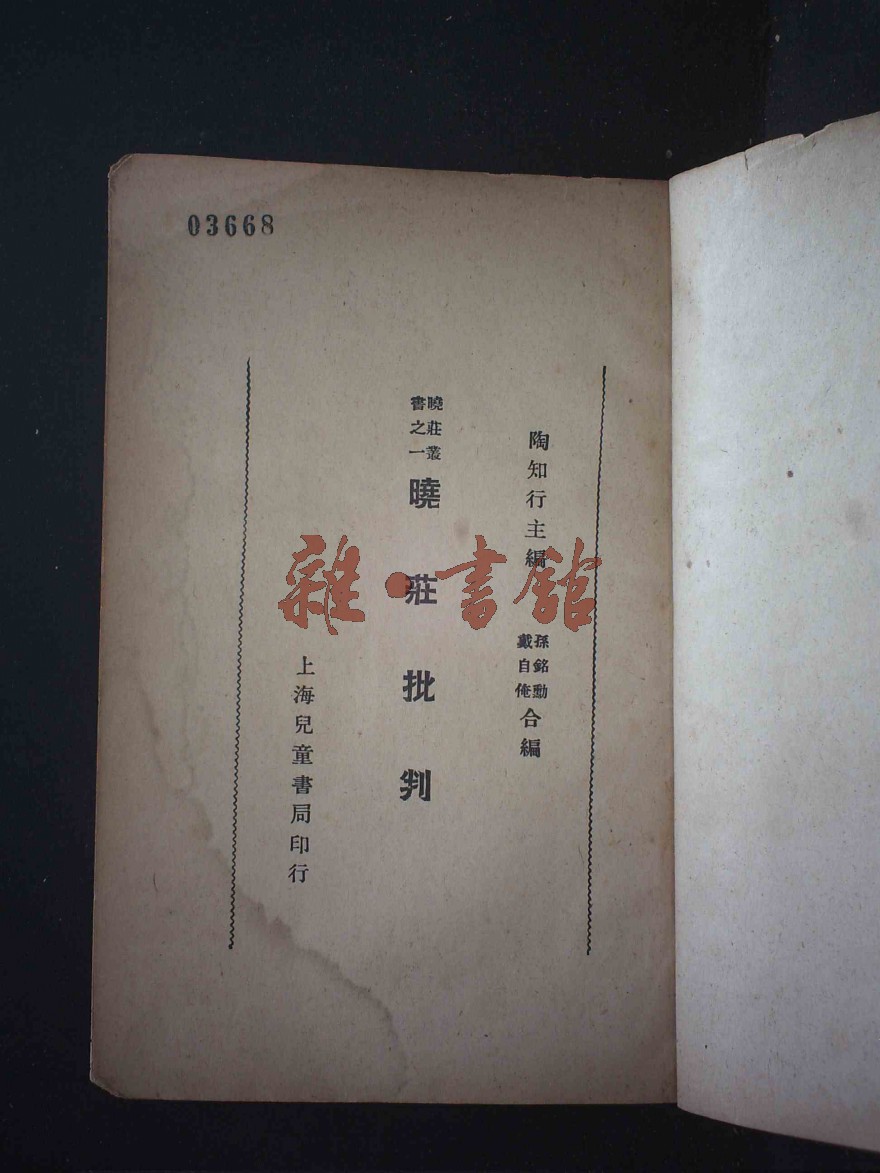 03668
陶知行主編
孫銘勳
戴自俺
合編
曉莊叢
書之一
曉莊批判
上海兒童書局印行
雜·書館